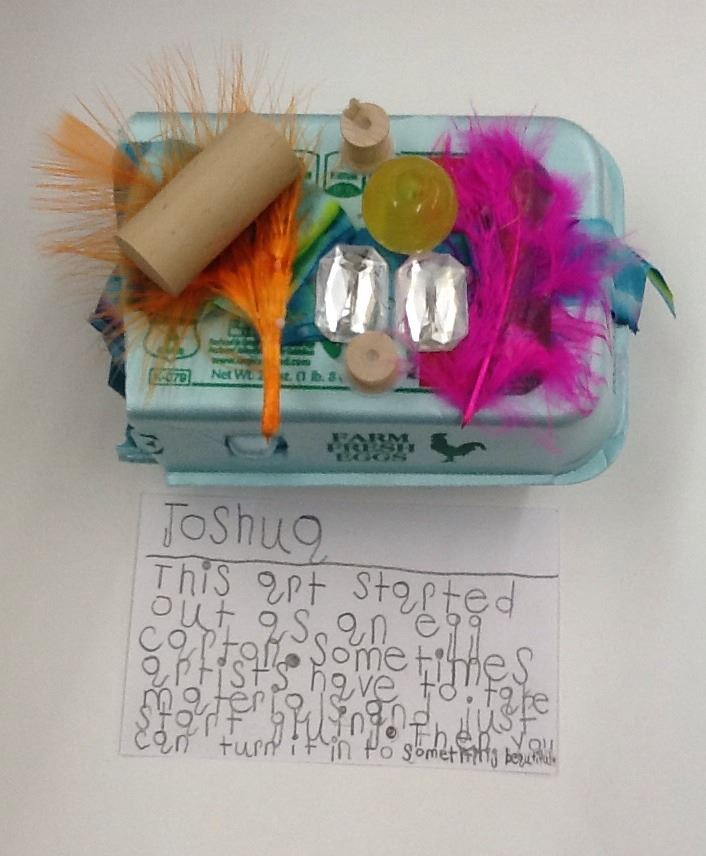 K-079
Net Wt. oz. (1 lb. 8
FARM
FRESH
EGGS
Joshua
This art started
out as an egg
carton. Sometimes
artists have to take
materials and just
start gluing. Then you
can turn it in to something beautiful.